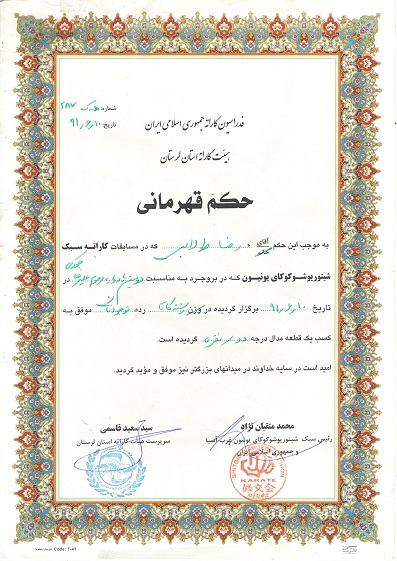 شماره: ۲۸۷
تاریخ: ۹۱٫۶٫۱۰
فدراسیون کاراته جمهوری اسلامی ایران
هیئت کاراته استان لرستان
حکم قهرمانی
به موجب این حکم آقای رضا که در مسابقات کاراته سبک
شیتوریوشوکوکای یونیون که در بروجرد به مناسبت در
تاریخ ۹۱٫۶٫۱۰ برگزار گردیده در وزن رده نوجوانان موفق به
کسب یک قطعه مدال درجه گردیده است.
امید است در سایه خداوند در میدانهای بزرگتر نیز موفق و مؤید گردید.
محمد متقیان نژاد
رئیس سبک شیتوریوشوکوکای یونیون غرب آسیا
و جمهوری اسلامی ایران
سید سعید قاسمی
سرپرست هیئت کاراته استان لرستان
KARATE
Code: F-41